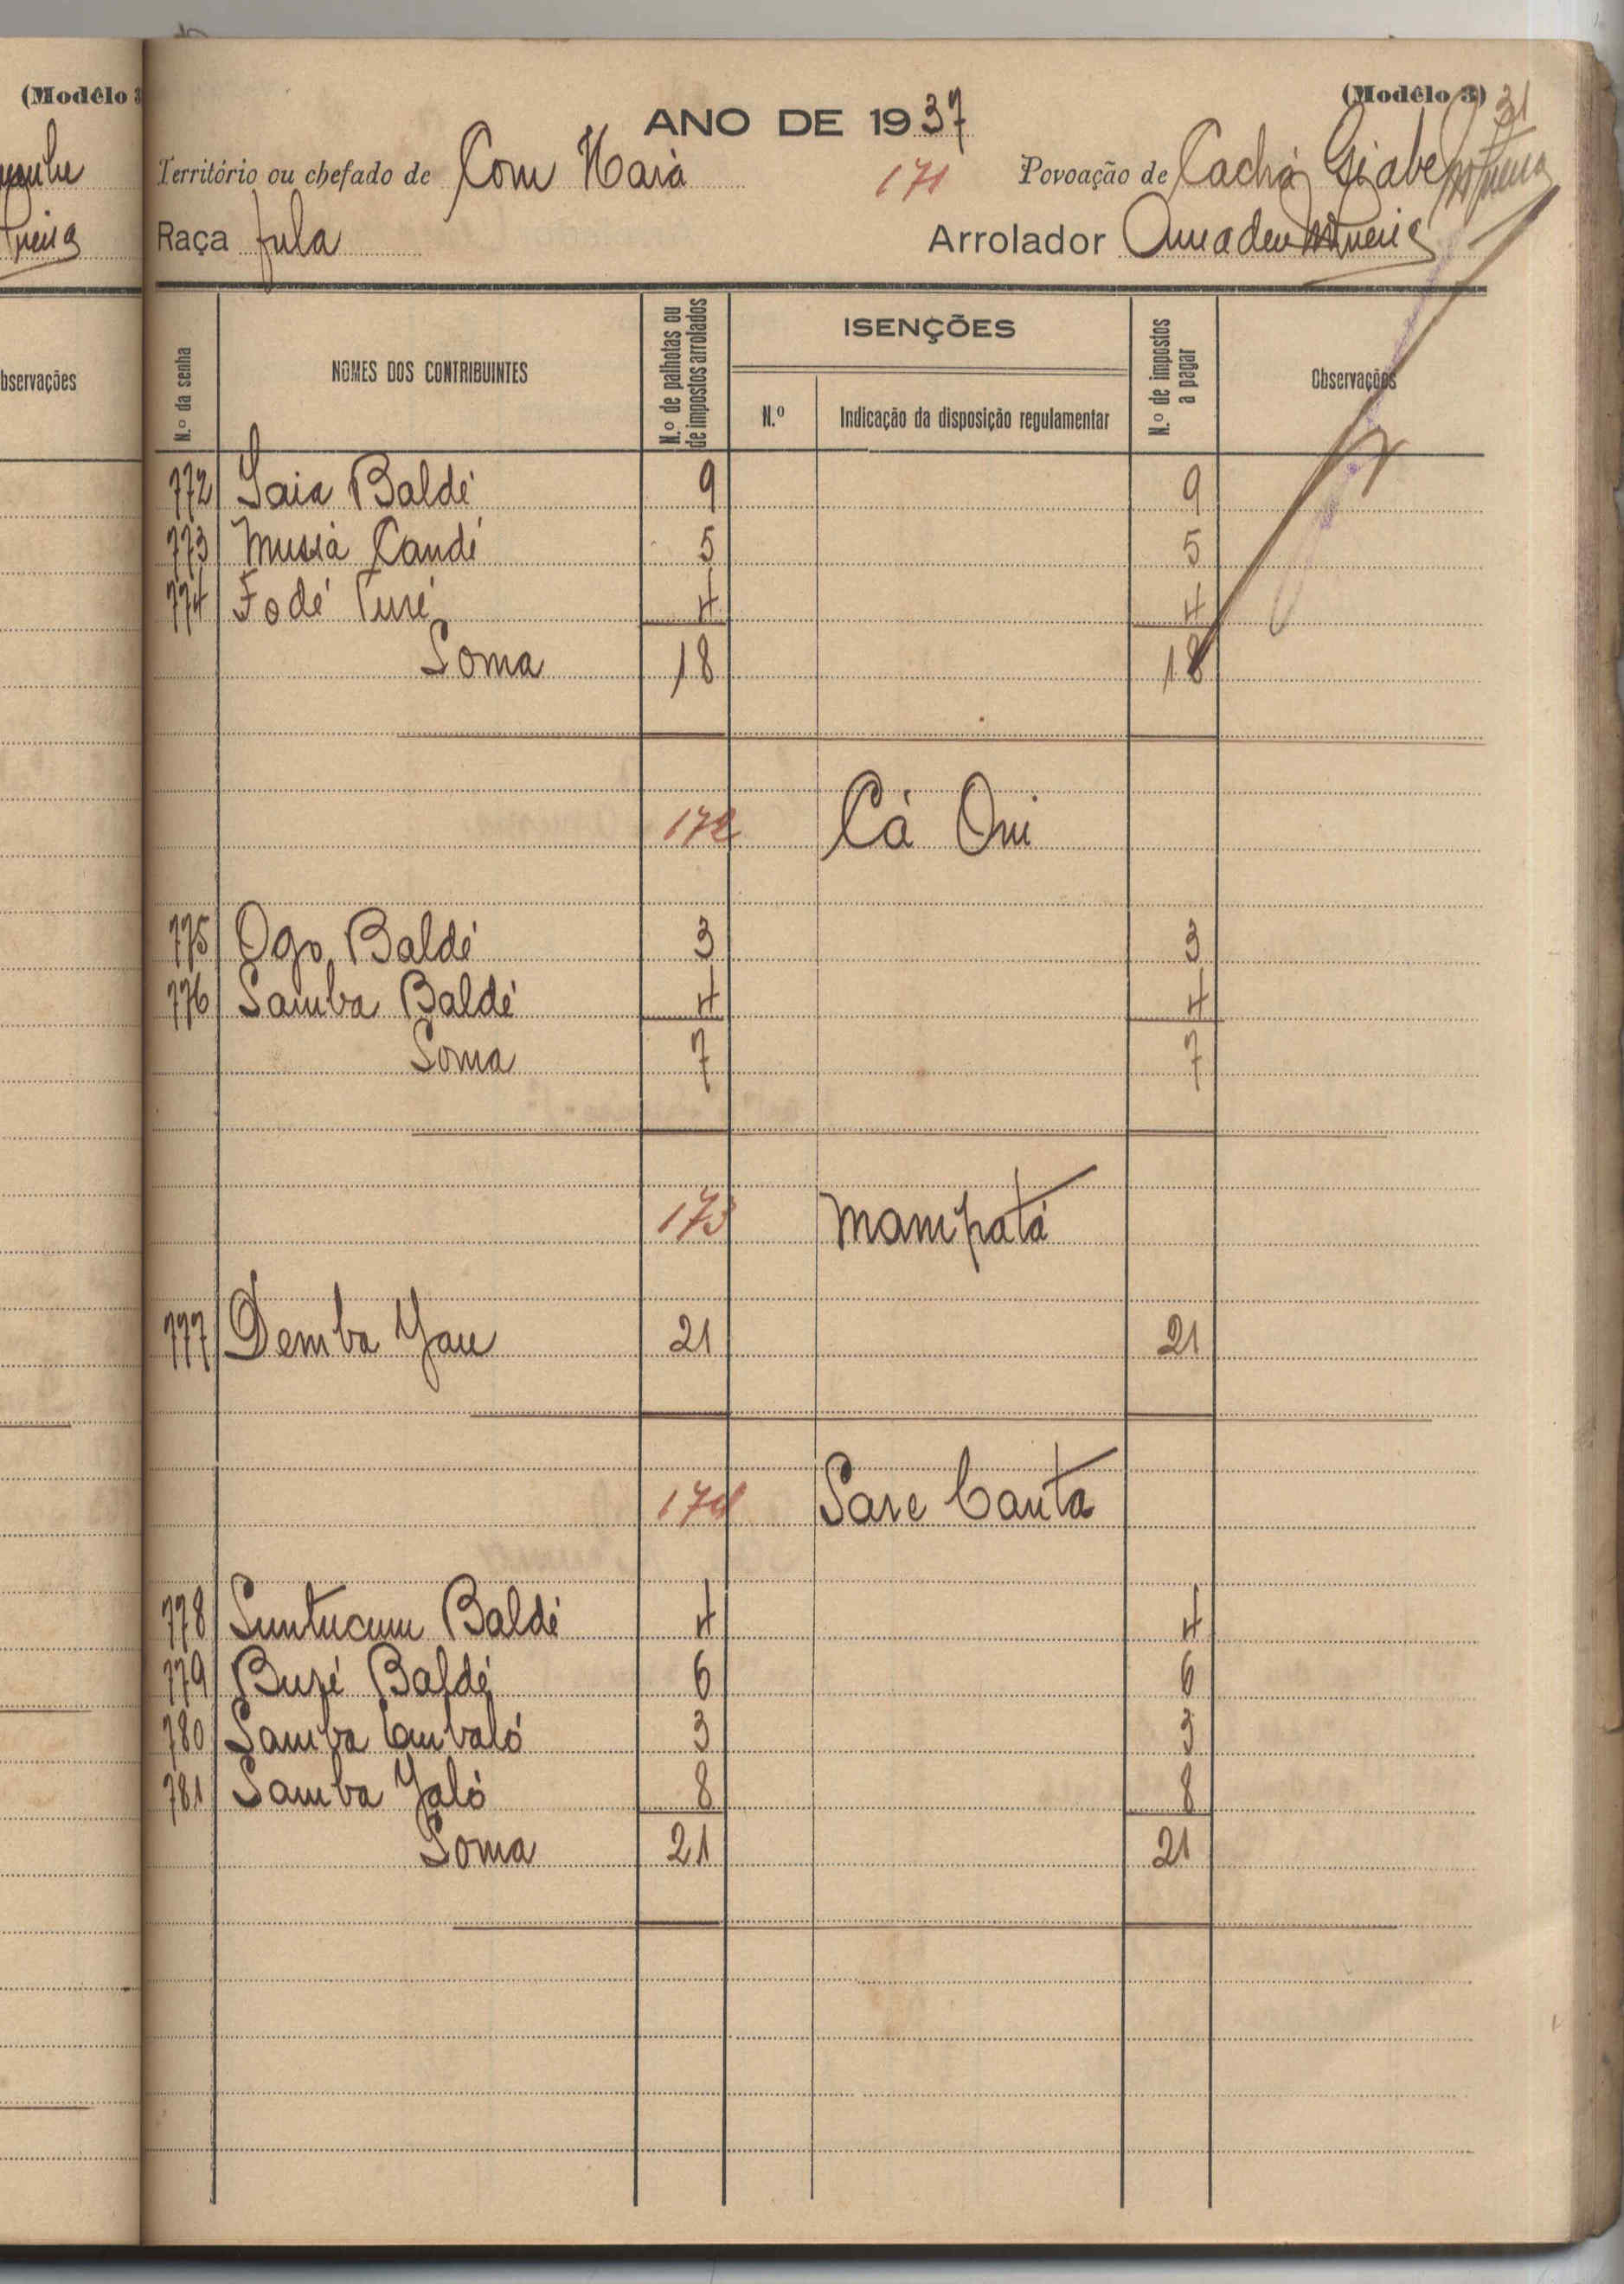 (Modêlo 3) 31
ANO DE 1937
Território ou chefado de Com Hara 171 Povoação de Cachá Giabe
Raça fula Arrolador Amadeu
N.º da senha NOMES DOS CONTRIBUINTES N.º de palhotas ou de impostos arrolados ISENÇÕES N.º Indicação da disposição regulamentar N.º de impostos a pagar Observações
772 Saia Baldé 9 9
773 Mussá Candé 5 5
774 Fodé Turé 4 4
Soma 18 18
172 Cá Oni
775 Ogo Baldé 3 3
776 Samba Baldé 4 4
Soma 7 7
173 Mampatá
777 Demba Jau 21 21
174 Sare Canta
778 Suntucum Baldé 4 4
779 Buré Baldé 6 6
780 Samba Embaló 3 3
781 Samba Jaló 8 8
Soma 21 21
(Modêlo 3
bservações